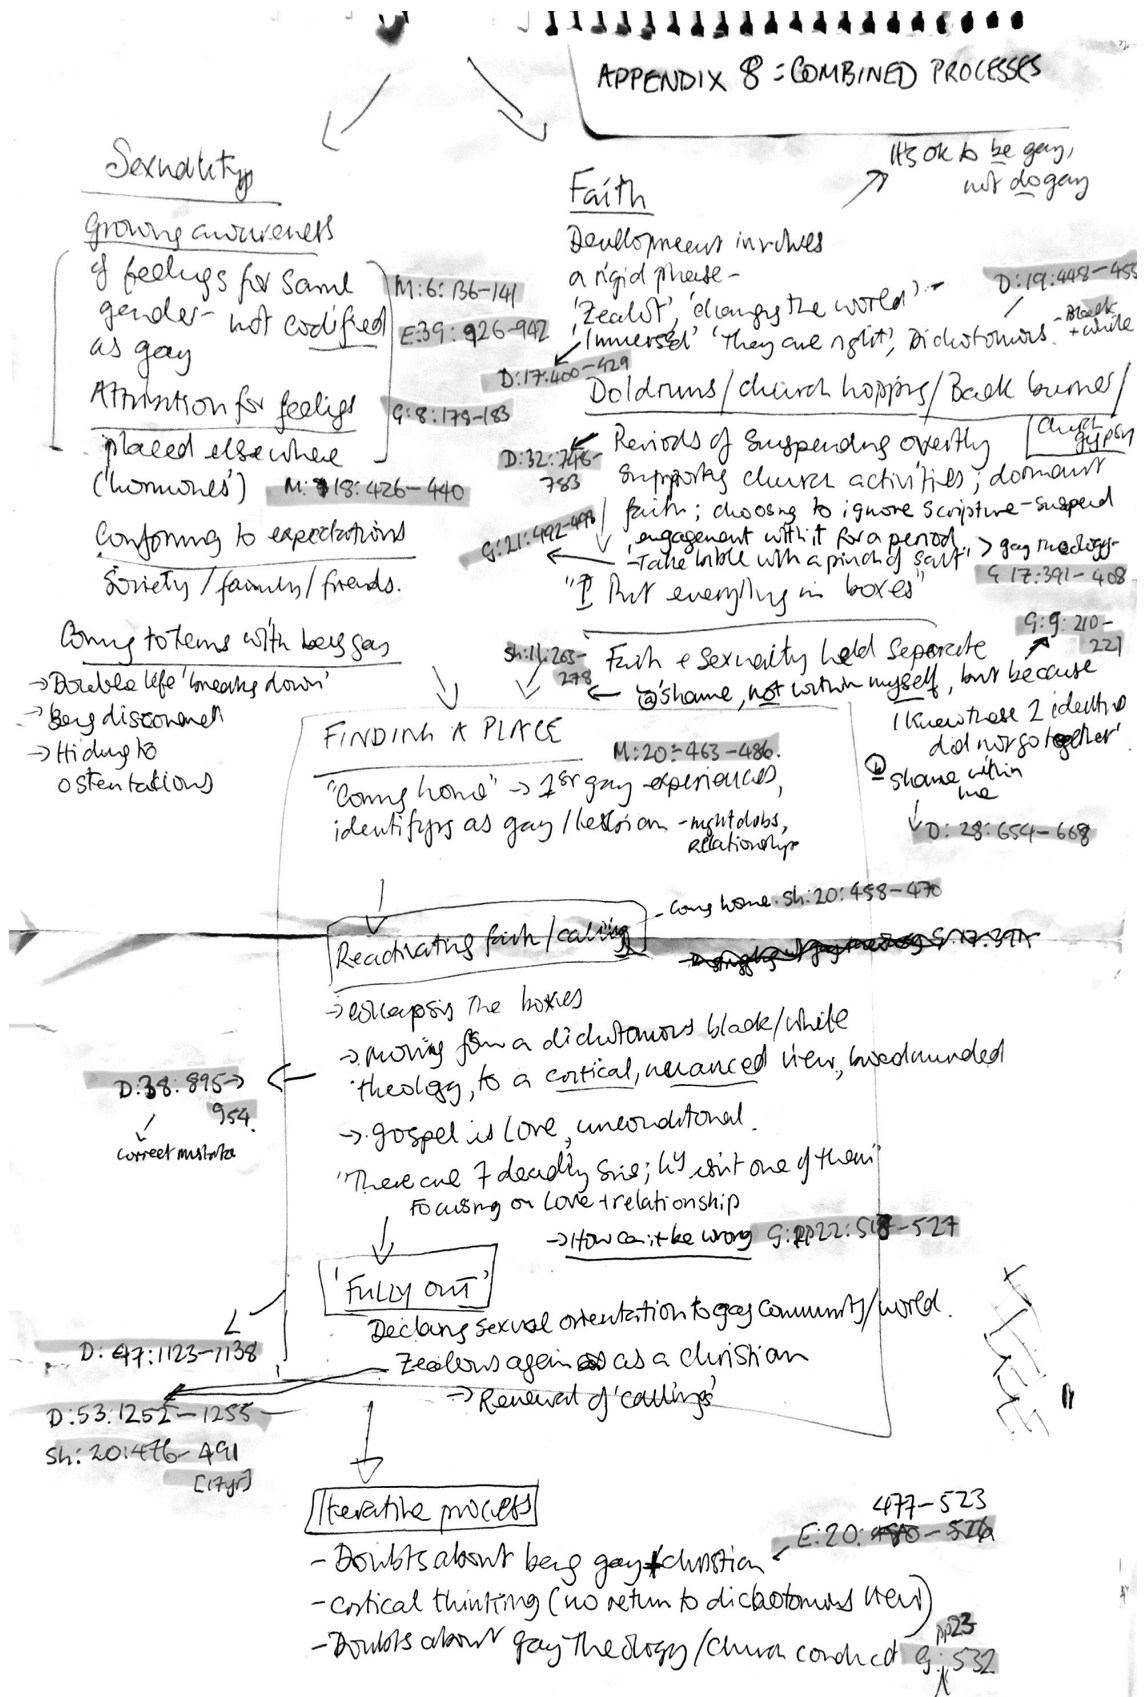 APPENDIX 8: COMBINED PROCESSES
Sexuality
Growing awareness
of feelings for same
gender - not codified
as gay
Attribution for feelings
placed elsewhere
('hormones') M: 18: 426-440
M:6: 136-141
E:39: 926-942
G:8:179-183
Conforming to expectations
Society/family/friends.
Coming to terms with being gay
→ Double life 'breaks down'
→ Being discovered
→ Hiding to
ostentations
It's ok to be gay,
not do gay
Faith
Development involves
a rigid phase -
'Zealot', 'changing the world'
'Immersed' 'They are right', Dichotomous - Black + white
D:19:448-455
D:17:400-429
Doldrums/church hopping/Back burner/
Church gypsy
Periods of suspending overtly
supporting church activities; dormant
faith; choosing to ignore scripture-suspend
engagement with it for a period
- Take bible with a pinch of salt" > gay theology-
G 17:391-408
D:32:748-
783
G:21:492-498
"I Put everything in boxes"
G:9:210-
221
Sh:11:263-
278
Faith & Sexuality held separate
ⓐ 'shame, not within myself, but because
I knew these 2 identities
did not go together'
ⓑ shame within
me
D: 28:654-668
FINDING A PLACE
M:20:463-486.
"Coming home" → 1st gay experiences,
identifying as gay/lesbian - nightclubs,
relationships
Reactivating faith/calling
- Coming home. Sh:20:458-470
→ collapsing the boxes
→ moving from a dichotomous black/white
theology, to a critical, nuanced view, broadminded
D:38:895→
954.
correct mistake
→ gospel is love, unconditional.
"There are 7 deadly sins; this isn't one of them"
Focusing on love + relationship
→ How can it be wrong G:pp22:518-527
'FULLY OUT'
Declaring sexual orientation to gay community/world.
Zealous again as a christian
→ Renewal of 'callings'
D: 47:1123-1138
D:53:1252-1255
Sh: 20:476-491
[17yr]
Iterative process
477-523
E:20:
- Doubts about being gay + christian
- critical thinking (no return to dichotomous view)
- Doubts about gay theology/church conduct G: pp23 532